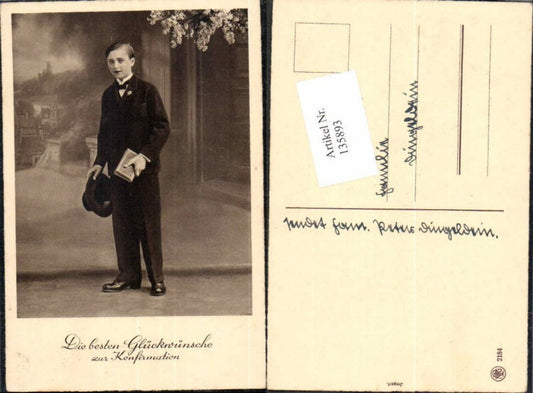 Die besten Glückwünsche
zur Konfirmation
Artikel Nr.
135893
familie
dingeldein
sendet fam. Peter dingeldein.
2184